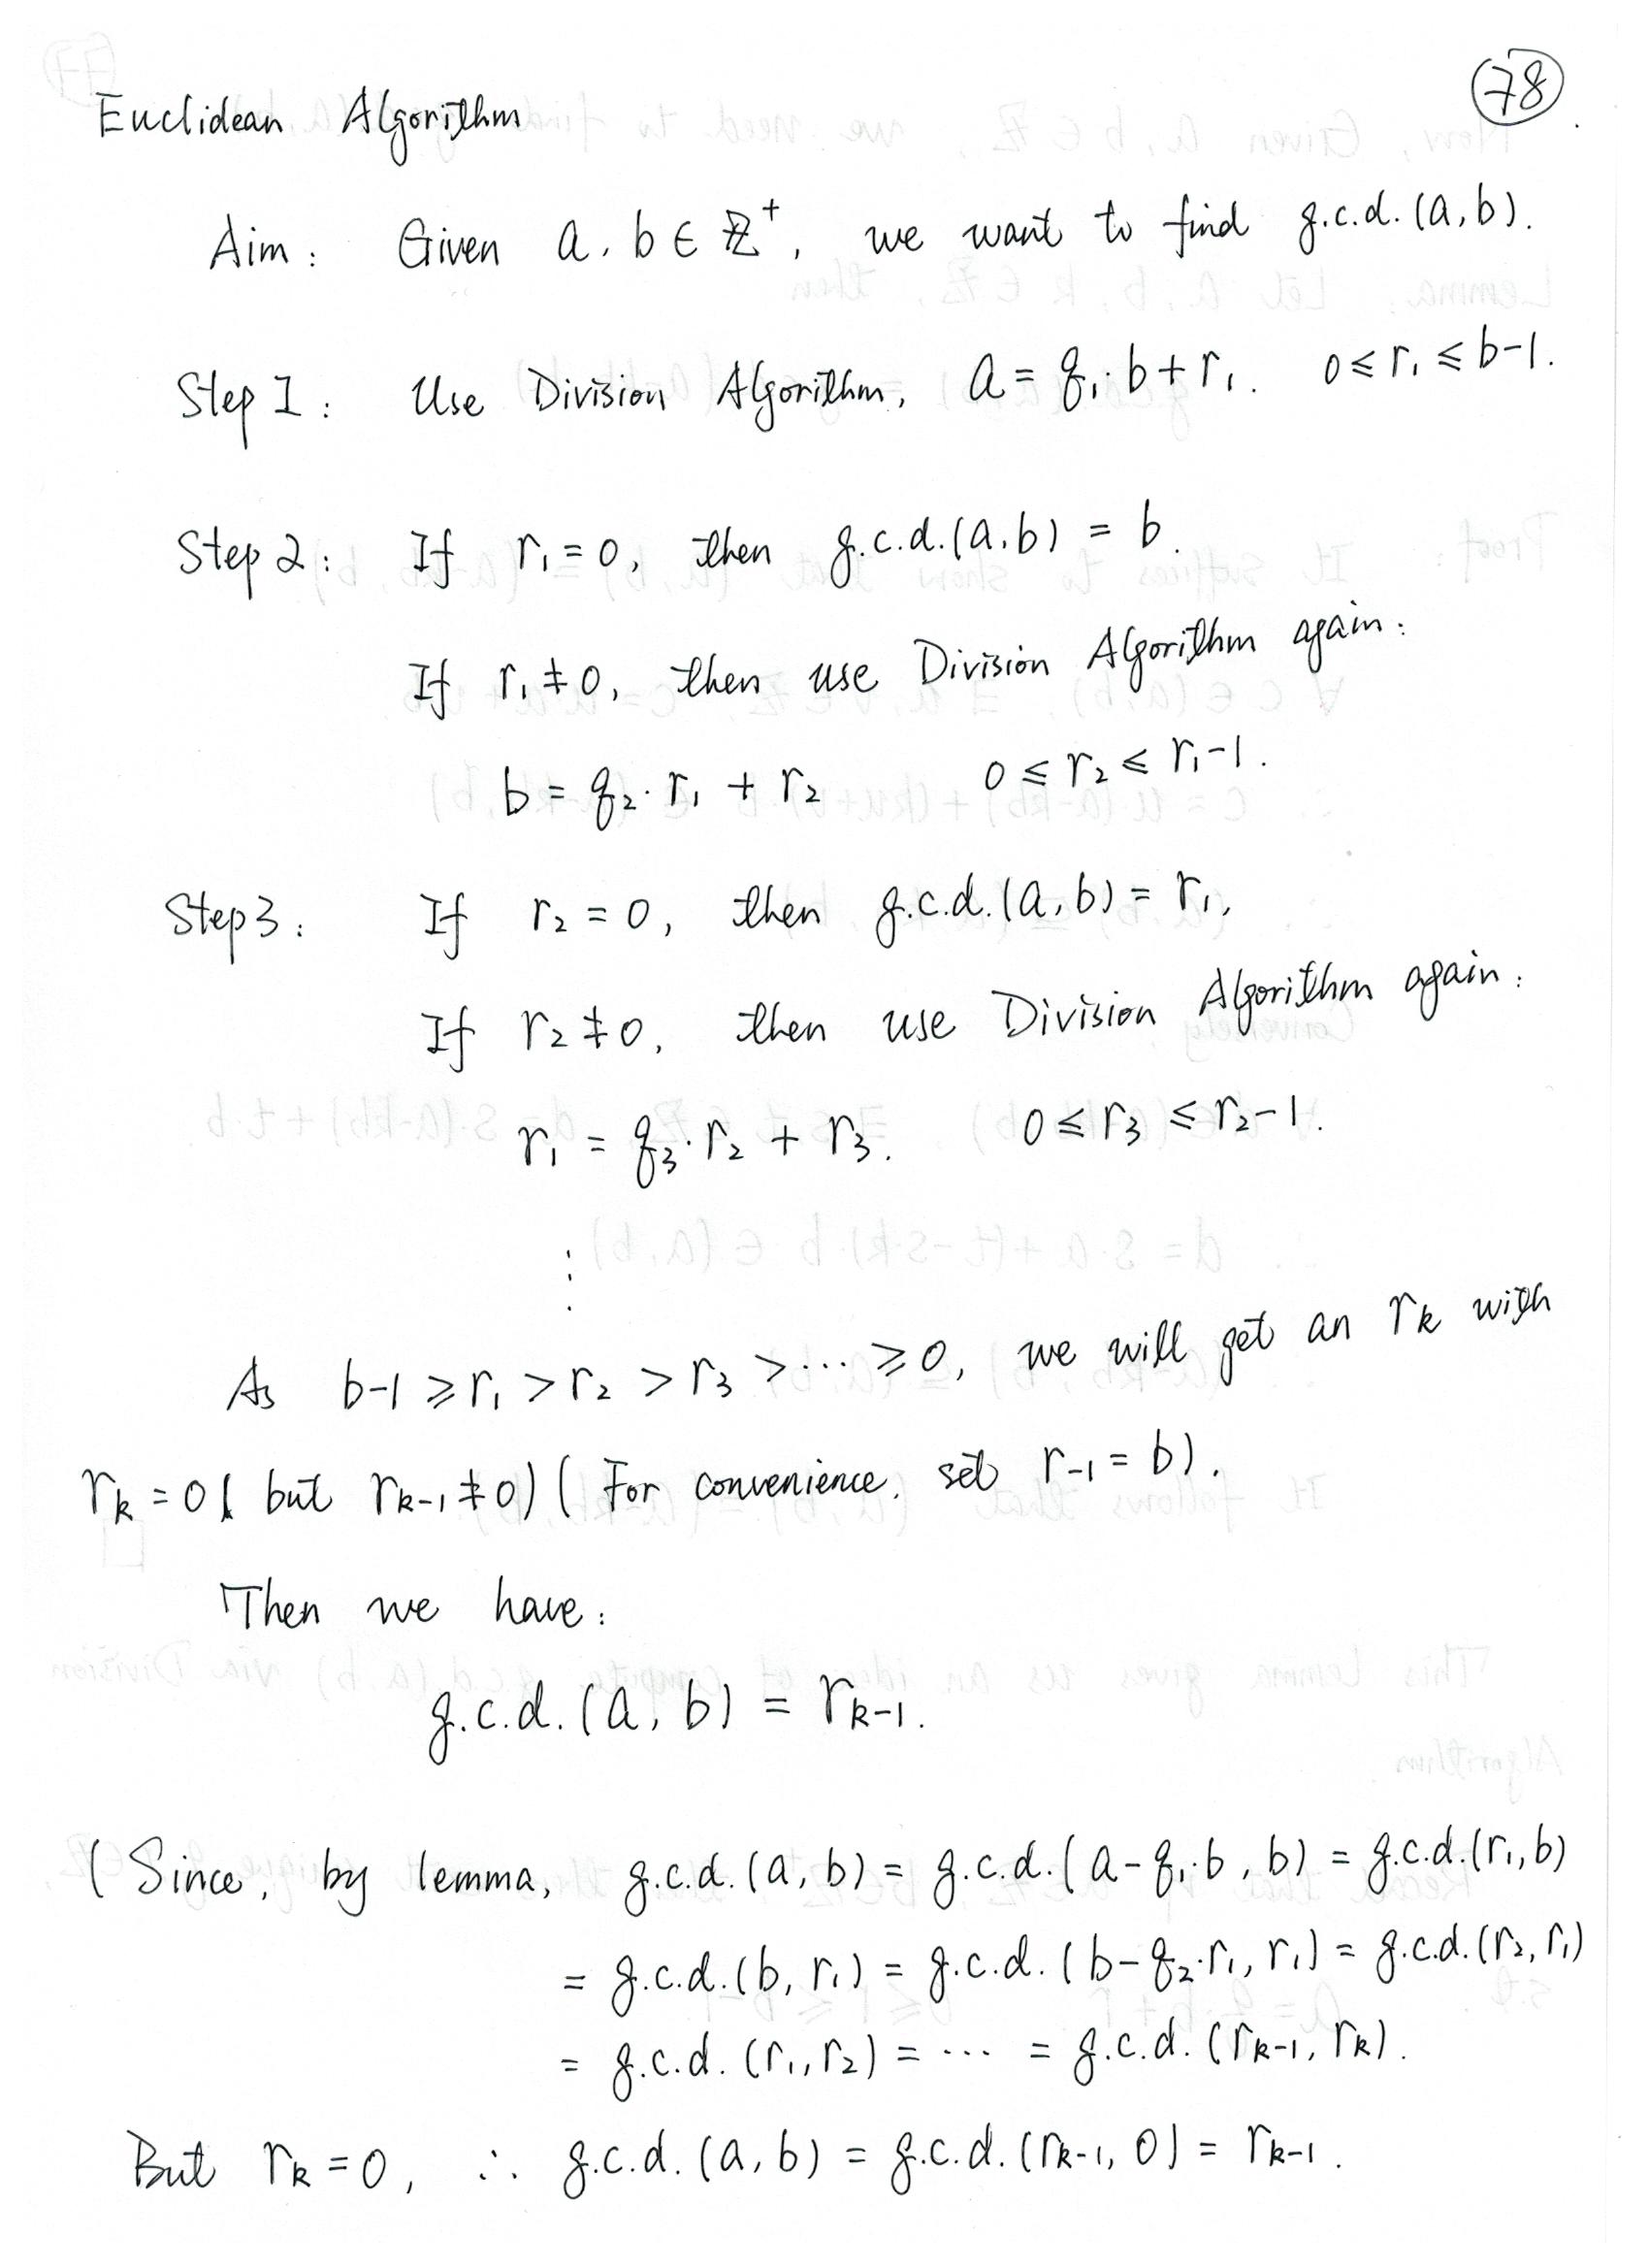 78
Euclidean Algorithm
Aim: Given a, b ∈ ℤ⁺, we want to find g.c.d.(a,b).
Step 1: Use Division Algorithm, a = q₁·b + r₁. 0 ≤ r₁ ≤ b-1.
Step 2: If r₁ = 0, then g.c.d.(a,b) = b.
If r₁ ≠ 0, then use Division Algorithm again:
b = q₂·r₁ + r₂ 0 ≤ r₂ ≤ r₁-1.
Step 3: If r₂ = 0, then g.c.d.(a,b) = r₁,
If r₂ ≠ 0, then use Division Algorithm again:
r₁ = q₃·r₂ + r₃. 0 ≤ r₃ ≤ r₂-1.
⋮
As b-1 ≥ r₁ > r₂ > r₃ > ⋯ ≥ 0, we will get an rₖ with
rₖ = 0 ( but rₖ₋₁ ≠ 0) ( For convenience, set r₋₁ = b).
Then we have:
g.c.d.(a, b) = rₖ₋₁.
( Since, by lemma, g.c.d.(a, b) = g.c.d.( a - q₁·b , b) = g.c.d.(r₁, b)
= g.c.d.(b, r₁) = g.c.d.( b - q₂·r₁, r₁) = g.c.d.(r₂, r₁)
= g.c.d.(r₁, r₂) = ⋯ = g.c.d.(rₖ₋₁, rₖ).
But rₖ = 0, ∴ g.c.d.(a, b) = g.c.d.(rₖ₋₁, 0) = rₖ₋₁.